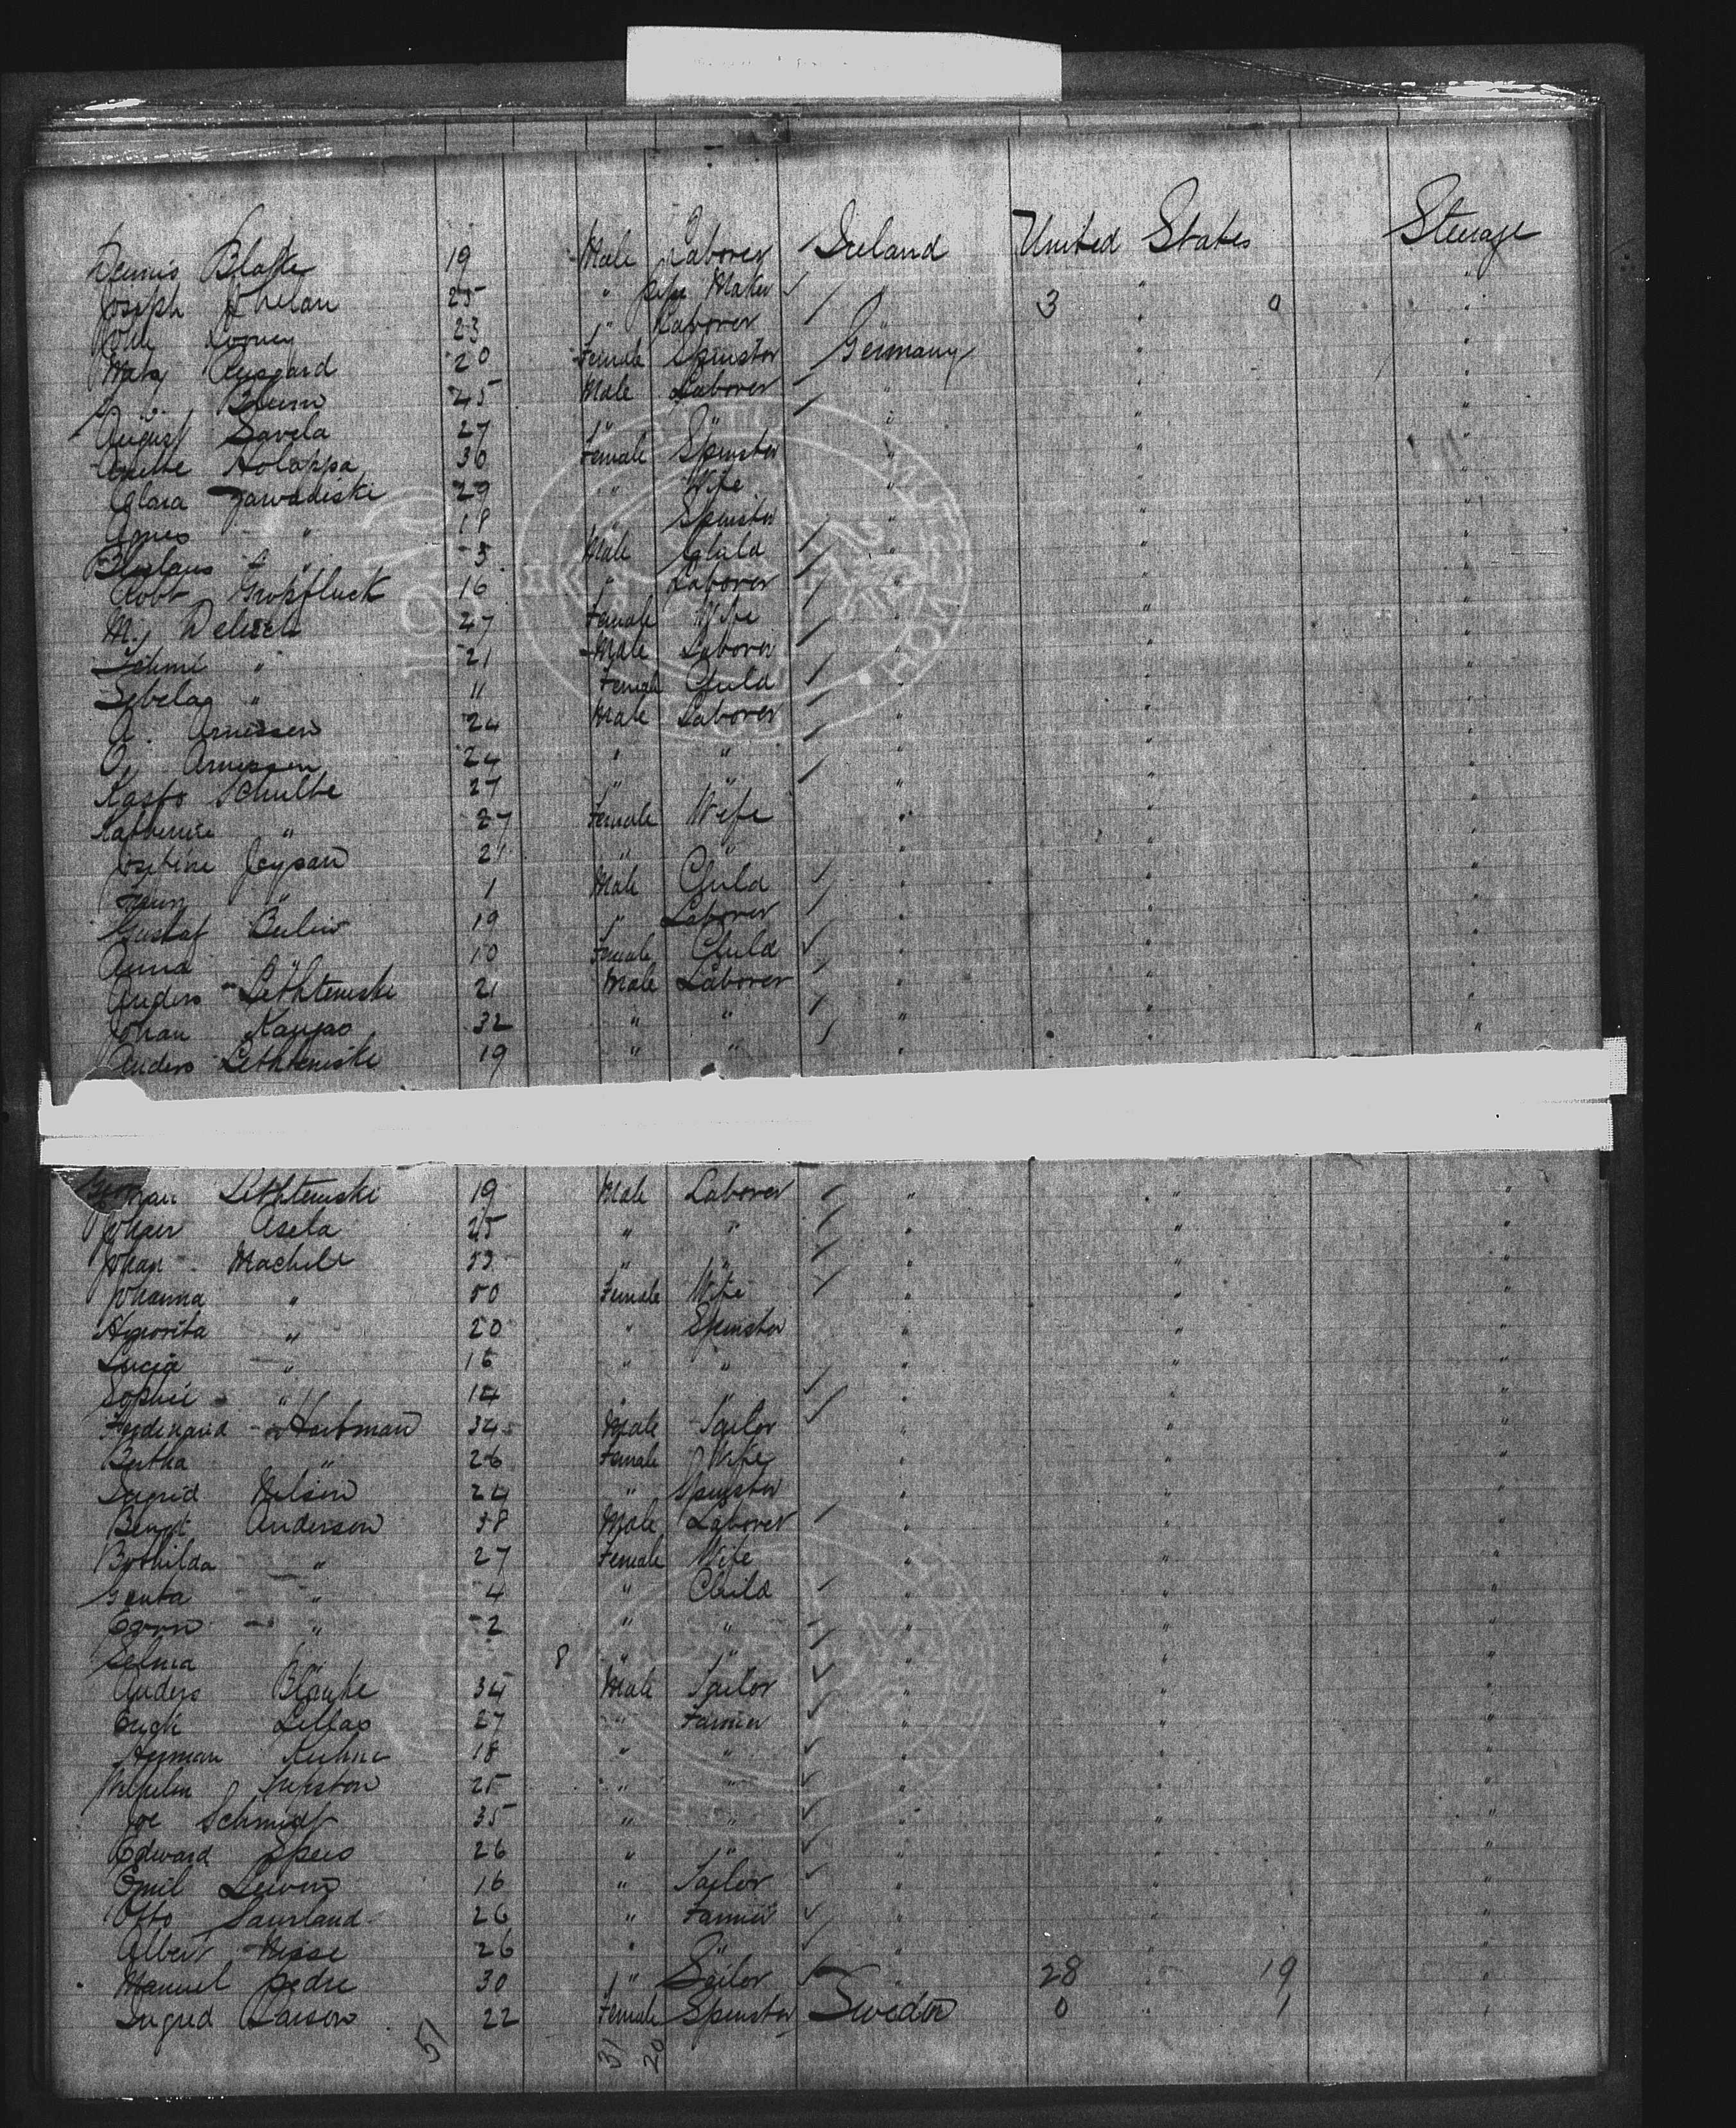 Dennis Blake 19 Male Laborer Ireland United States Steerage
Joseph Whelan 25 " pipe Maker " " "
John Looney 23 " Laborer " 3 " 0 "
Mary 20 Female Spinster Germany " "
Blum 45 Male Laborer " " "
August Savela 27 " " " " "
Anette Holappa 30 Female Spinster " " "
Clara Zawadiski 29 " Wife " " "
Agnes " 18 " Spinster " " "
" 5 Male Child " " "
Robt Gropfluck 16 " Laborer " " "
M. Delisch 27 Female Wife " " "
" 21 Male Laborer " " "
Sebela " 11 Female Child " " "
A. Arnessen 24 Male Laborer " " "
O. Arnessen 24 " " " " "
Schulte 27 " " " " "
Katherine " 27 Female Wife " " "
Josefine Jeysan 21 " " " " "
" 1 Male Child " " "
Gustaf 19 " Laborer " " "
Anna 10 Female Child " " "
Anders Lethtemski 21 Male Laborer " " "
Johan 32 " " " " "
Anders Lethtemski 19 " " " "
Lethtemski 19 Male Laborer " " "
Johan Asela 25 " " " " "
Johan Machile 53 " " " " "
Johanna " 50 Female Wife " " "
" 20 " Spinster " " "
Lucia " 16 " " " " "
Sophie " 14 " " " " "
Ferdinand Hartman 34 Male Tailor " " "
Bertha " 26 Female Wife " " "
Ingrid Nelson 24 " Spinster " " "
Bengt Anderson 38 Male Laborer " " "
Bothilda " 27 Female Wife " " "
Genta " 4 " Child " " "
" 2 " " " " "
Selma " 8 " " " " "
Anders Blanke 34 Male Tailor " " "
Erick Lillas 27 " Farmer " " "
Herman Kuhne 18 " " " " "
Wilhelm 25 " " " " "
Joe Schmidt 35 " " " " "
Edward Speis 26 " " " " "
Emil 16 " Tailor " " "
Otto Saurland 26 " Farmer " " "
Albert Hesse 26 " " " " "
Manuel Pedre 30 " Sailor " 28 " 19 "
Ingrid Larson 22 Female Spinster Sweden 0 " 1 "
51 31 20